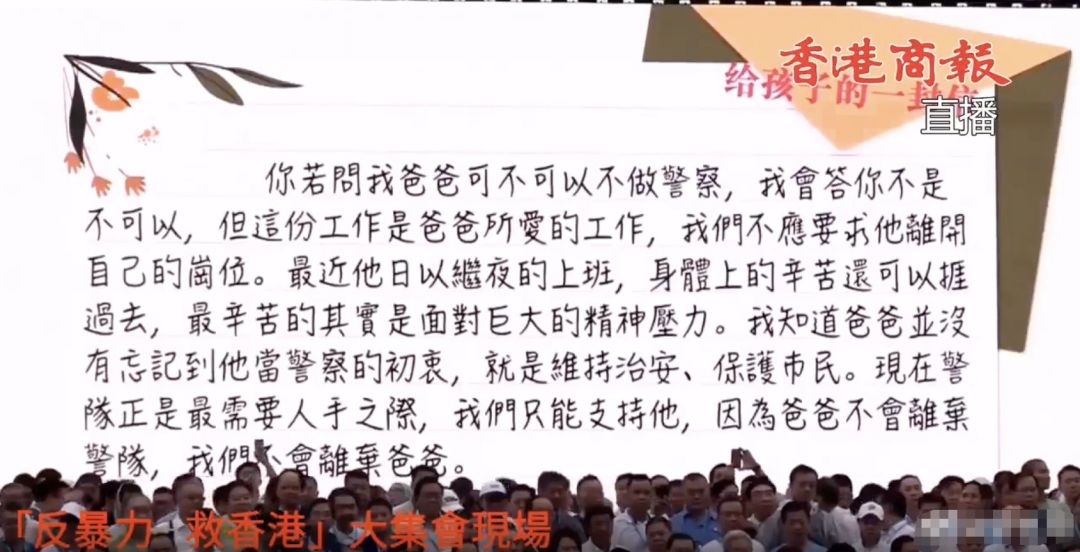 香港商報
直播
给孩子的一封信
你若問我爸爸可不可以不做警察，我會答你不是
不可以，但這份工作是爸爸所愛的工作，我們不應要求他離開
自己的崗位。最近他日以繼夜的上班，身體上的辛苦還可以捱
過去，最辛苦的其實是面對巨大的精神壓力。我知道爸爸並沒
有忘記到他當警察的初衷，就是維持治安、保護市民。現在警
隊正是最需要人手之際，我們只能支持他，因為爸爸不會離棄
警隊，我們不會離棄爸爸。
「反暴力 救香港」大集會現場